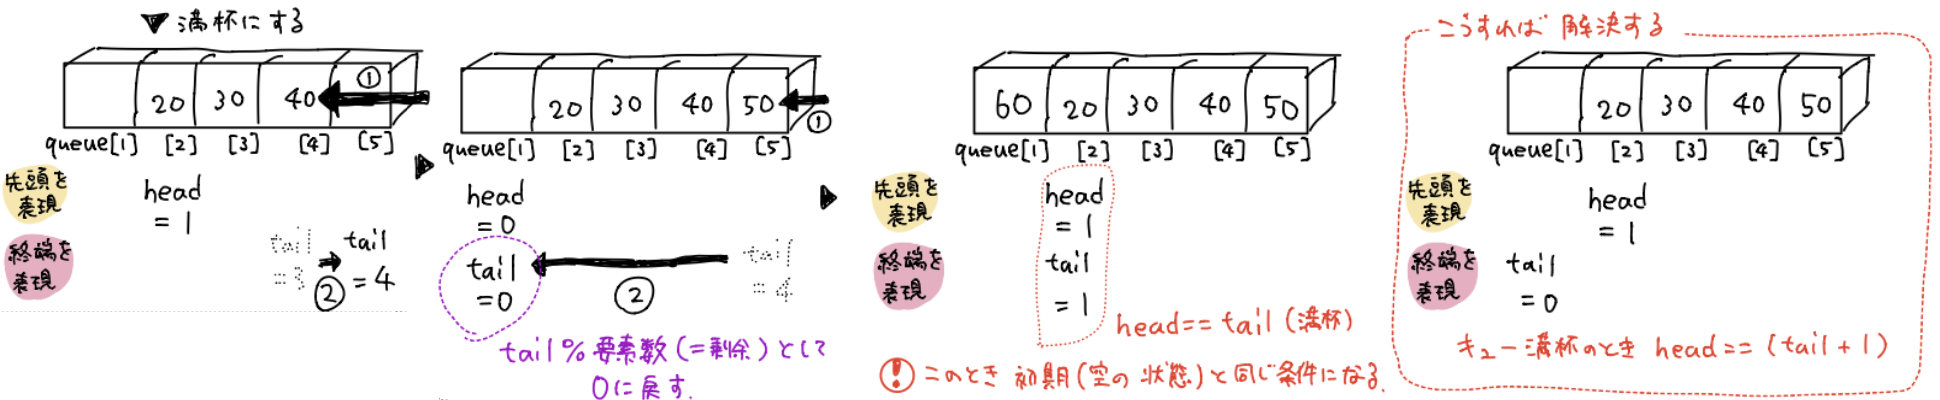 ▼ 満杯にする
①
20 30 40
queue[1] [2] [3] [4] [5]
先頭を
表現
head
= 1
終端を
表現
tail
=3
tail
= 4
②
▶
20 30 40 50
①
queue[1] [2] [3] [4] [5]
head
= 0
tail
= 0
②
tail
= 4
tail % 要素数 (= 剰余) として
0に戻す.
▶
60 20 30 40 50
queue[1] [2] [3] [4] [5]
先頭を
表現
head
= 1
終端を
表現
tail
= 1
head == tail (満杯)
! このとき 初期(空の 状態)と同じ条件になる.
こうすれば 解決する
20 30 40 50
queue[1] [2] [3] [4] [5]
先頭を
表現
head
= 1
終端を
表現
tail
= 0
キュー満杯のとき head == (tail + 1)